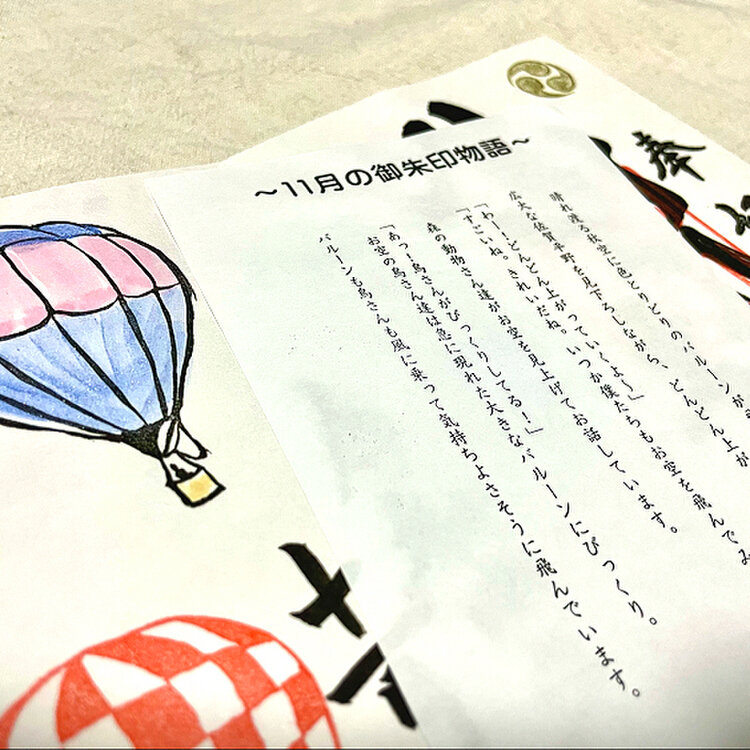 奉
～11月の御朱印物語～
晴れ渡る秋空に色とりどりのバルーンが
広大な佐賀平野を見下ろしながら、どんどん上が
「わーーどんどん上がっていくよ～」
「すごいね。きれいだね。いつか僕たちもお空を飛んでみ
森の動物さん達がお空を見上げてお話しています。
「あっー鳥さんがびっくりしてる！」
お空の鳥さん達は急に現れた大きなバルーンにびっくり。
バルーンも鳥さんも風に乗って気持ちよさそうに飛んでいます。